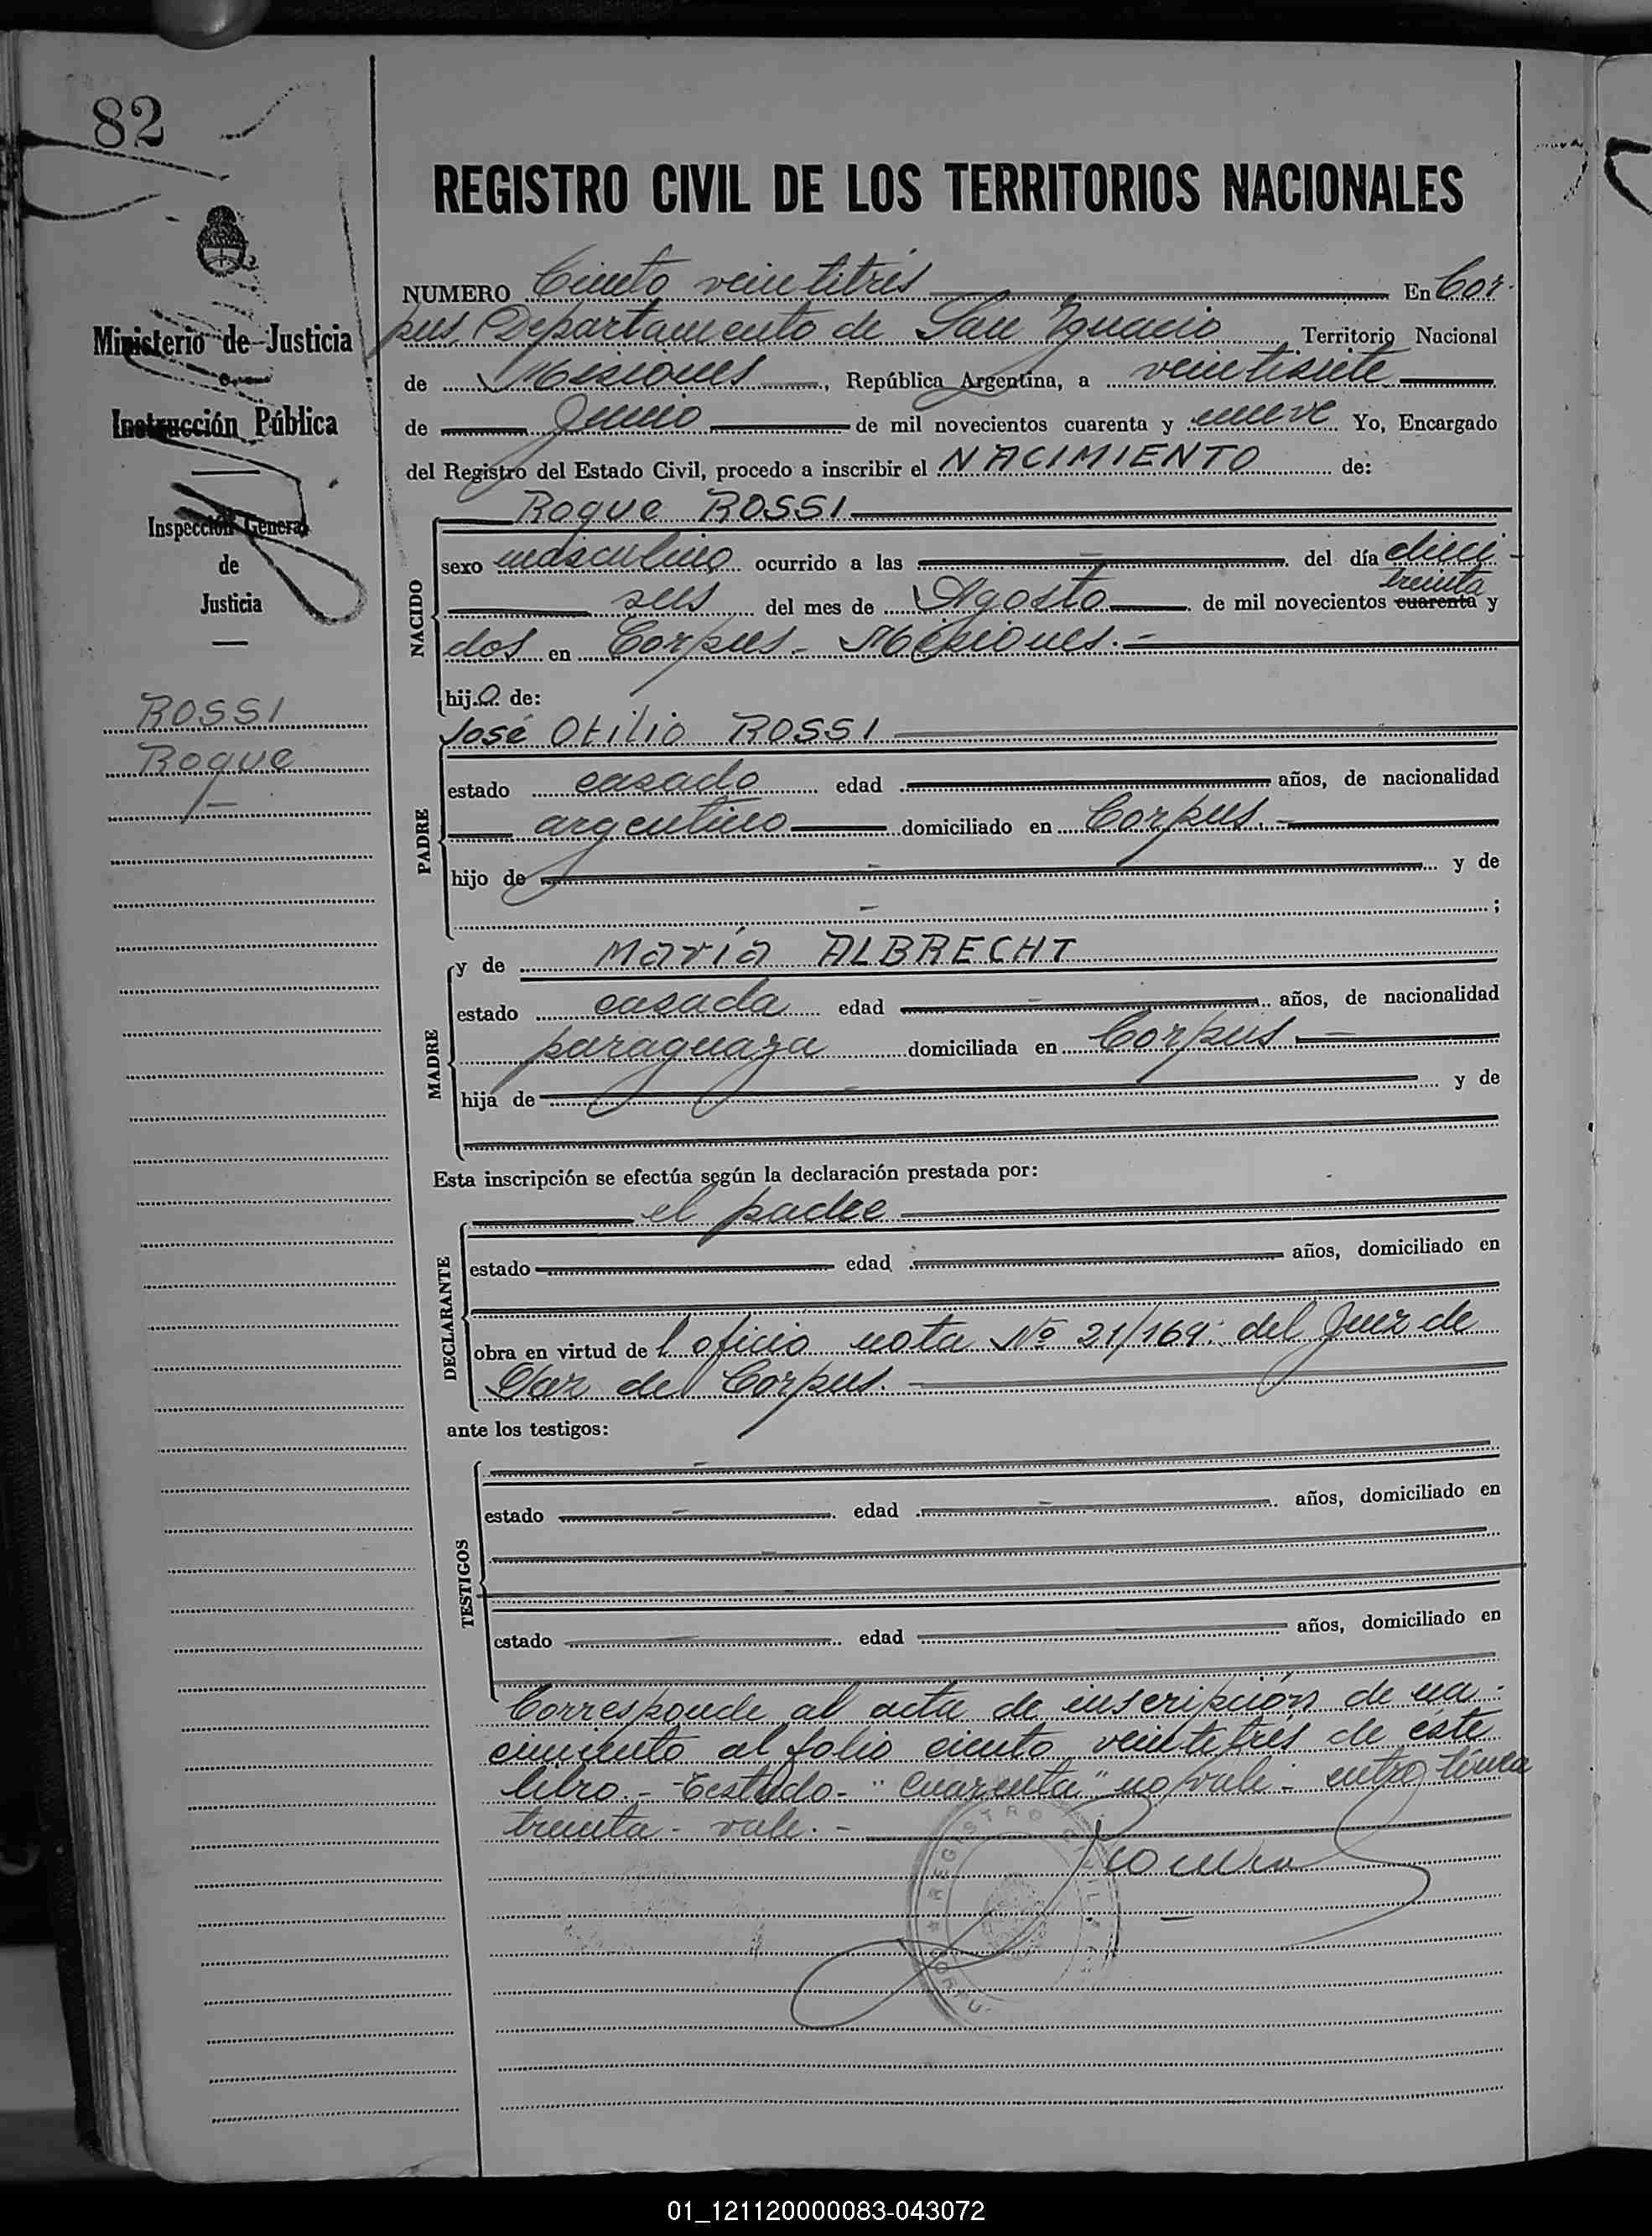 82
REGISTRO CIVIL DE LOS TERRITORIOS NACIONALES
Ministerio de Justicia
e
Instrucción Pública
Inspección General
de
Justicia
ROSSI
Roque
NUMERO Ciento veintitrés En Cor-
pus, Departamento de San Ignacio Territorio Nacional
de Misiones, República Argentina, a veintisiete
de Junio de mil novecientos cuarenta y nueve Yo, Encargado
del Registro del Estado Civil, procedo a inscribir el NACIMIENTO de:
Roque ROSSI
NACIDO
sexo masculino ocurrido a las - del día dieci-
treinta
seis del mes de Agosto de mil novecientos cuarenta y
dos en Corpus - Misiones.-
hijo de:
José Otilio ROSSI
PADRE
estado casado edad años, de nacionalidad
argentino domiciliado en Corpus.-
hijo de - y de
- ;
MADRE
y de María ALBRECHT
estado casada edad - años, de nacionalidad
paraguaya domiciliada en Corpus -
hija de - y de
Esta inscripción se efectúa según la declaración prestada por:
el padre
DECLARANTE
estado edad años, domiciliado en
obra en virtud del oficio nota Nº 21/169: del Juez de
Paz de Corpus.-
ante los testigos:
TESTIGOS
estado - edad - años, domiciliado en
estado - edad años, domiciliado en
Corresponde al acta de inscripción de na-
cimiento al folio ciento veintitrés de éste
libro.- Testado- "cuarenta" no vale- entre línea
treinta - vale.-
REGISTRO CIVIL
CORPUS
01_121120000083-043072